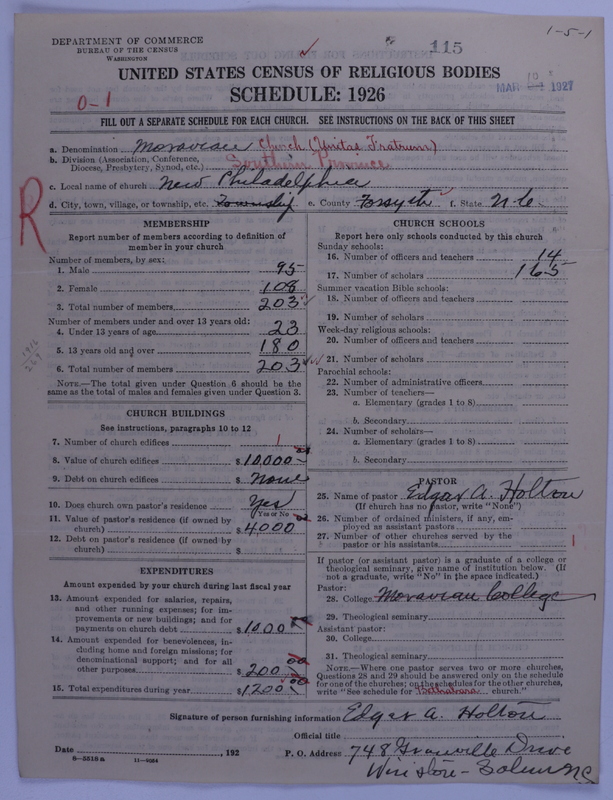 1-5-1
DEPARTMENT OF COMMERCE
BUREAU OF THE CENSUS
WASHINGTON
115
UNITED STATES CENSUS OF RELIGIOUS BODIES
SCHEDULE: 1926
MAR 1927
0-1
FILL OUT A SEPARATE SCHEDULE FOR EACH CHURCH. SEE INSTRUCTIONS ON THE BACK OF THIS SHEET
a. Denomination Moravian Church (Unitas Fratrum)
b. Division (Association, Conference, Diocese, Presbytery, Synod, etc.) Southern Province
c. Local name of church New Philadelphia
d. City, town, village, or township, etc. Township e. County Forsyth f. State N.C.
R
MEMBERSHIP
Report number of members according to definition of member in your church
Number of members, by sex:
1. Male 95
2. Female 108
3. Total number of members 203
Number of members under and over 13 years old:
4. Under 13 years of age 23
5. 13 years old and over 180
6. Total number of members 203
NOTE.—The total given under Question 6 should be the same as the total of males and females given under Question 3.
CHURCH BUILDINGS
See instructions, paragraphs 10 to 12
7. Number of church edifices 1
8. Value of church edifices $10,000
9. Debt on church edifices $ None
10. Does church own pastor's residence? Yes
(Yes or No)
11. Value of pastor's residence (if owned by church) $4000
12. Debt on pastor's residence (if owned by church) $
EXPENDITURES
Amount expended by your church during last fiscal year
13. Amount expended for salaries, repairs, and other running expenses; for improvements or new buildings; and for payments on church debt $1000
14. Amount expended for benevolences, including home and foreign missions; for denominational support; and for all other purposes $200 00
15. Total expenditures during year $1200 00
CHURCH SCHOOLS
Report here only schools conducted by this church
Sunday schools:
16. Number of officers and teachers 14
17. Number of scholars 165
Summer vacation Bible schools:
18. Number of officers and teachers
19. Number of scholars
Week-day religious schools:
20. Number of officers and teachers
21. Number of scholars
Parochial schools:
22. Number of administrative officers
23. Number of teachers—
a. Elementary (grades 1 to 8)
b. Secondary
24. Number of scholars—
a. Elementary (grades 1 to 8)
b. Secondary
PASTOR
25. Name of pastor Edgar A. Holton
(If church has no pastor, write "None")
26. Number of ordained ministers, if any, employed as assistant pastors
27. Number of other churches served by the pastor or his assistants 1
If pastor (or assistant pastor) is a graduate of a college or theological seminary, give name of institution below. (If not a graduate, write "No" in the space indicated.)
Pastor:
28. College Moravian College
29. Theological seminary
Assistant pastor:
30. College
31. Theological seminary
NOTE.—Where one pastor serves two or more churches, Questions 28 and 29 should be answered only on the schedule for one of the churches; on the schedules for the other churches, write "See schedule for Bethabara church."
Signature of person furnishing information Edgar A. Holton
Official title
Date , 192
P. O. Address 748 Granville Drive
Winston-Salem N.C.
8-5518 a 11-9034